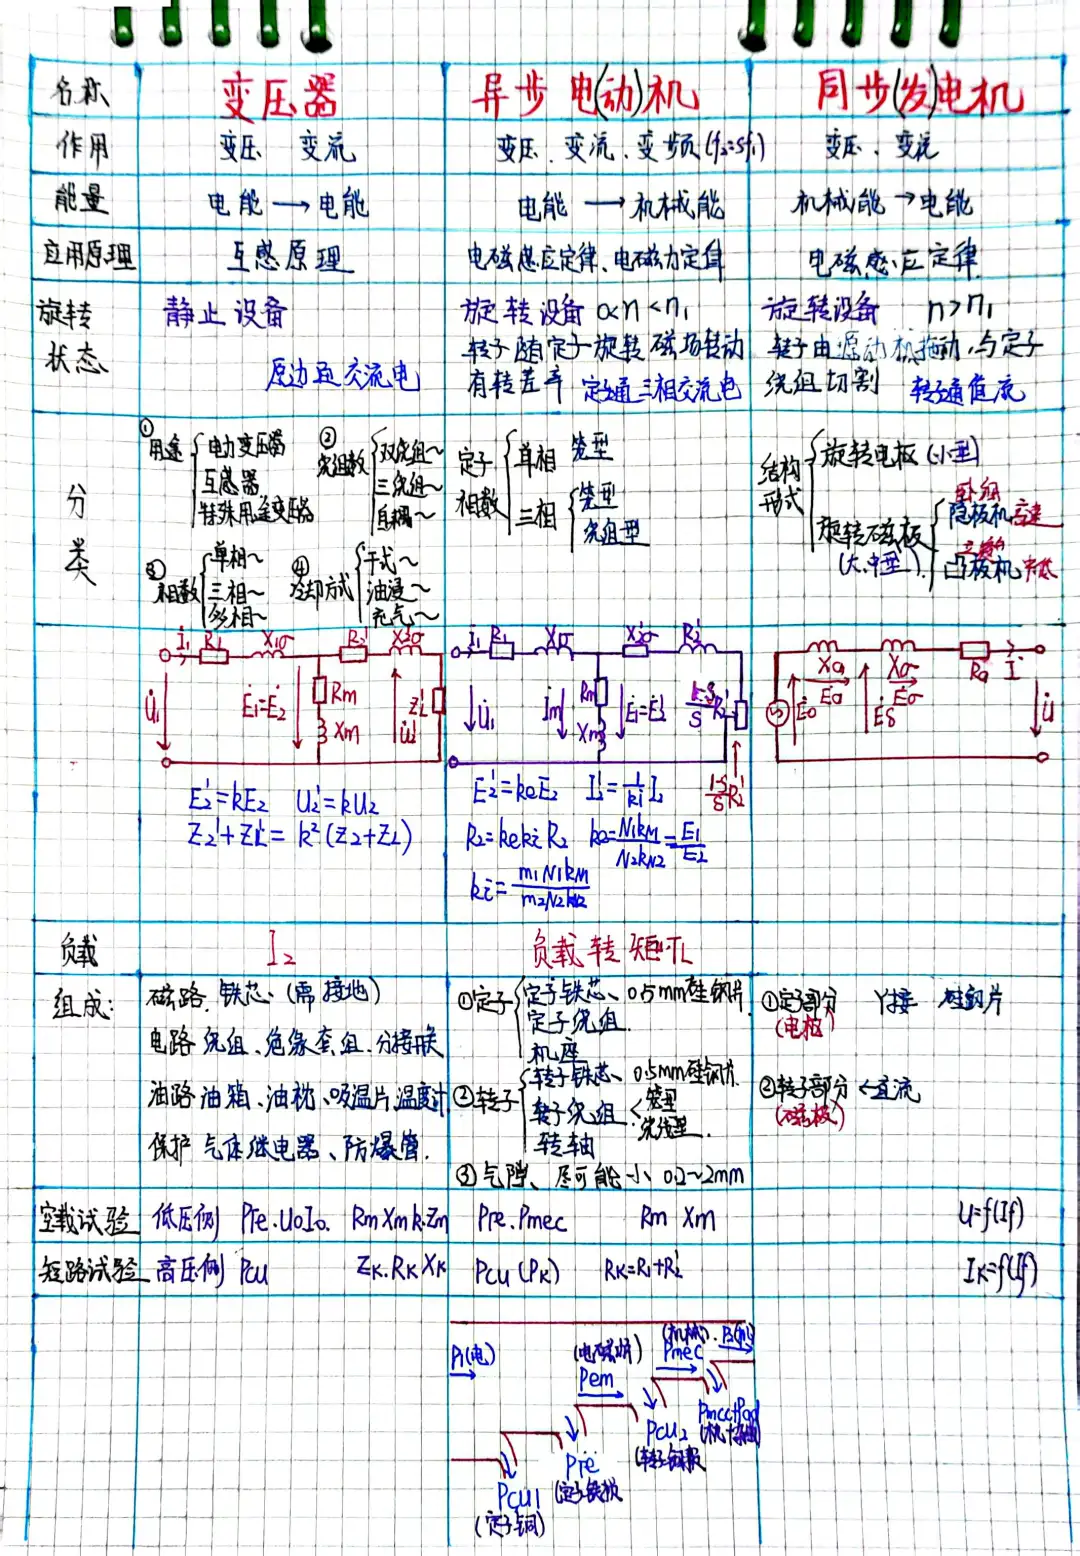 名称 变压器 异步电(动)机 同步(发)电机
作用 变压 变流 变压、变流、变频(f₂=sf₁) 变压、变流
能量 电能→电能 电能→机械能 机械能→电能
应用原理 互感原理 电磁感应定律、电磁力定律 电磁感应定律
旋转状态
静止设备
原边通交流电
旋转设备 0<n<n₁
转子随定子旋转磁场转动
有转差率 定子通三相交流电
旋转设备 n>n₁
转子由原动机拖动,与定子
绕组切割 转子通直流
分类
①用途 电力变压器
互感器
特殊用途变压器
②绕组数 双绕组~
三绕组~
自耦~
③相数 单相~
三相~
多相~
④冷却方式 干式~
油浸~
充气~
定子相数 单相 笼型
三相 笼型
绕组型
结构形式 旋转电极 (小型)
旋转磁极 (大、中型)
卧式
隐极机 高速
凸极机
İ₁ R₁ X₁σ R₂' X₂σ'
U̇₁ Ė₁=Ė₂' Rm Xm U̇₂' ZL'
E₂'=kE₂ U₂'=kU₂
Z₂'+ZL'=k²(Z₂+ZL)
İ₁ R₁ X₁σ X₂σ' R₂'
U̇₁ İm Rm Xm Ė₁=Ė₂' 1-S/S R₂'
1-S/S R₂'
E₂'=keE₂ I₂'=1/ki I₂
R₂=keki R₂ ke=N₁kN1/N₂kN2=E₁/E₂
ki=m₁N₁kN1/m₂N₂kN2
Ė₀ Xa Ėa Xσ Ėσ Ėδ Ra İ U̇
负载 I₂ 负载转矩TL
组成:
磁路 铁芯 (需接地)
电路 绕组、绝缘套组、分接开关
油路 油箱、油枕、吸温片、温度计
保护 气体继电器、防爆管.
①定子 定子铁芯、0.5mm硅钢片
定子绕组
机座
②转子 转子铁芯、0.5mm硅钢片.
转子绕组 笼型
绕线型.
转轴
③气隙、尽可能小 0.2~2mm
①定子部分 Y接 硅钢片
(电枢)
②转子部分 ←直流
(磁极)
空载试验 低压侧 PFe.U₀I₀. Rm Xm k.Zm PFe.Pmec Rm Xm U=f(If)
短路试验 高压侧 Pcu Zk.Rk Xk Pcu(Pk) Rk=R₁+R₂' Ik=f(If)
P₁(电)
Pem
Pmec
(机械)
Pcu1
(定子铜)
PFe
(定子铁损)
Pcu2
(转子铜损)
Pmec+Pad